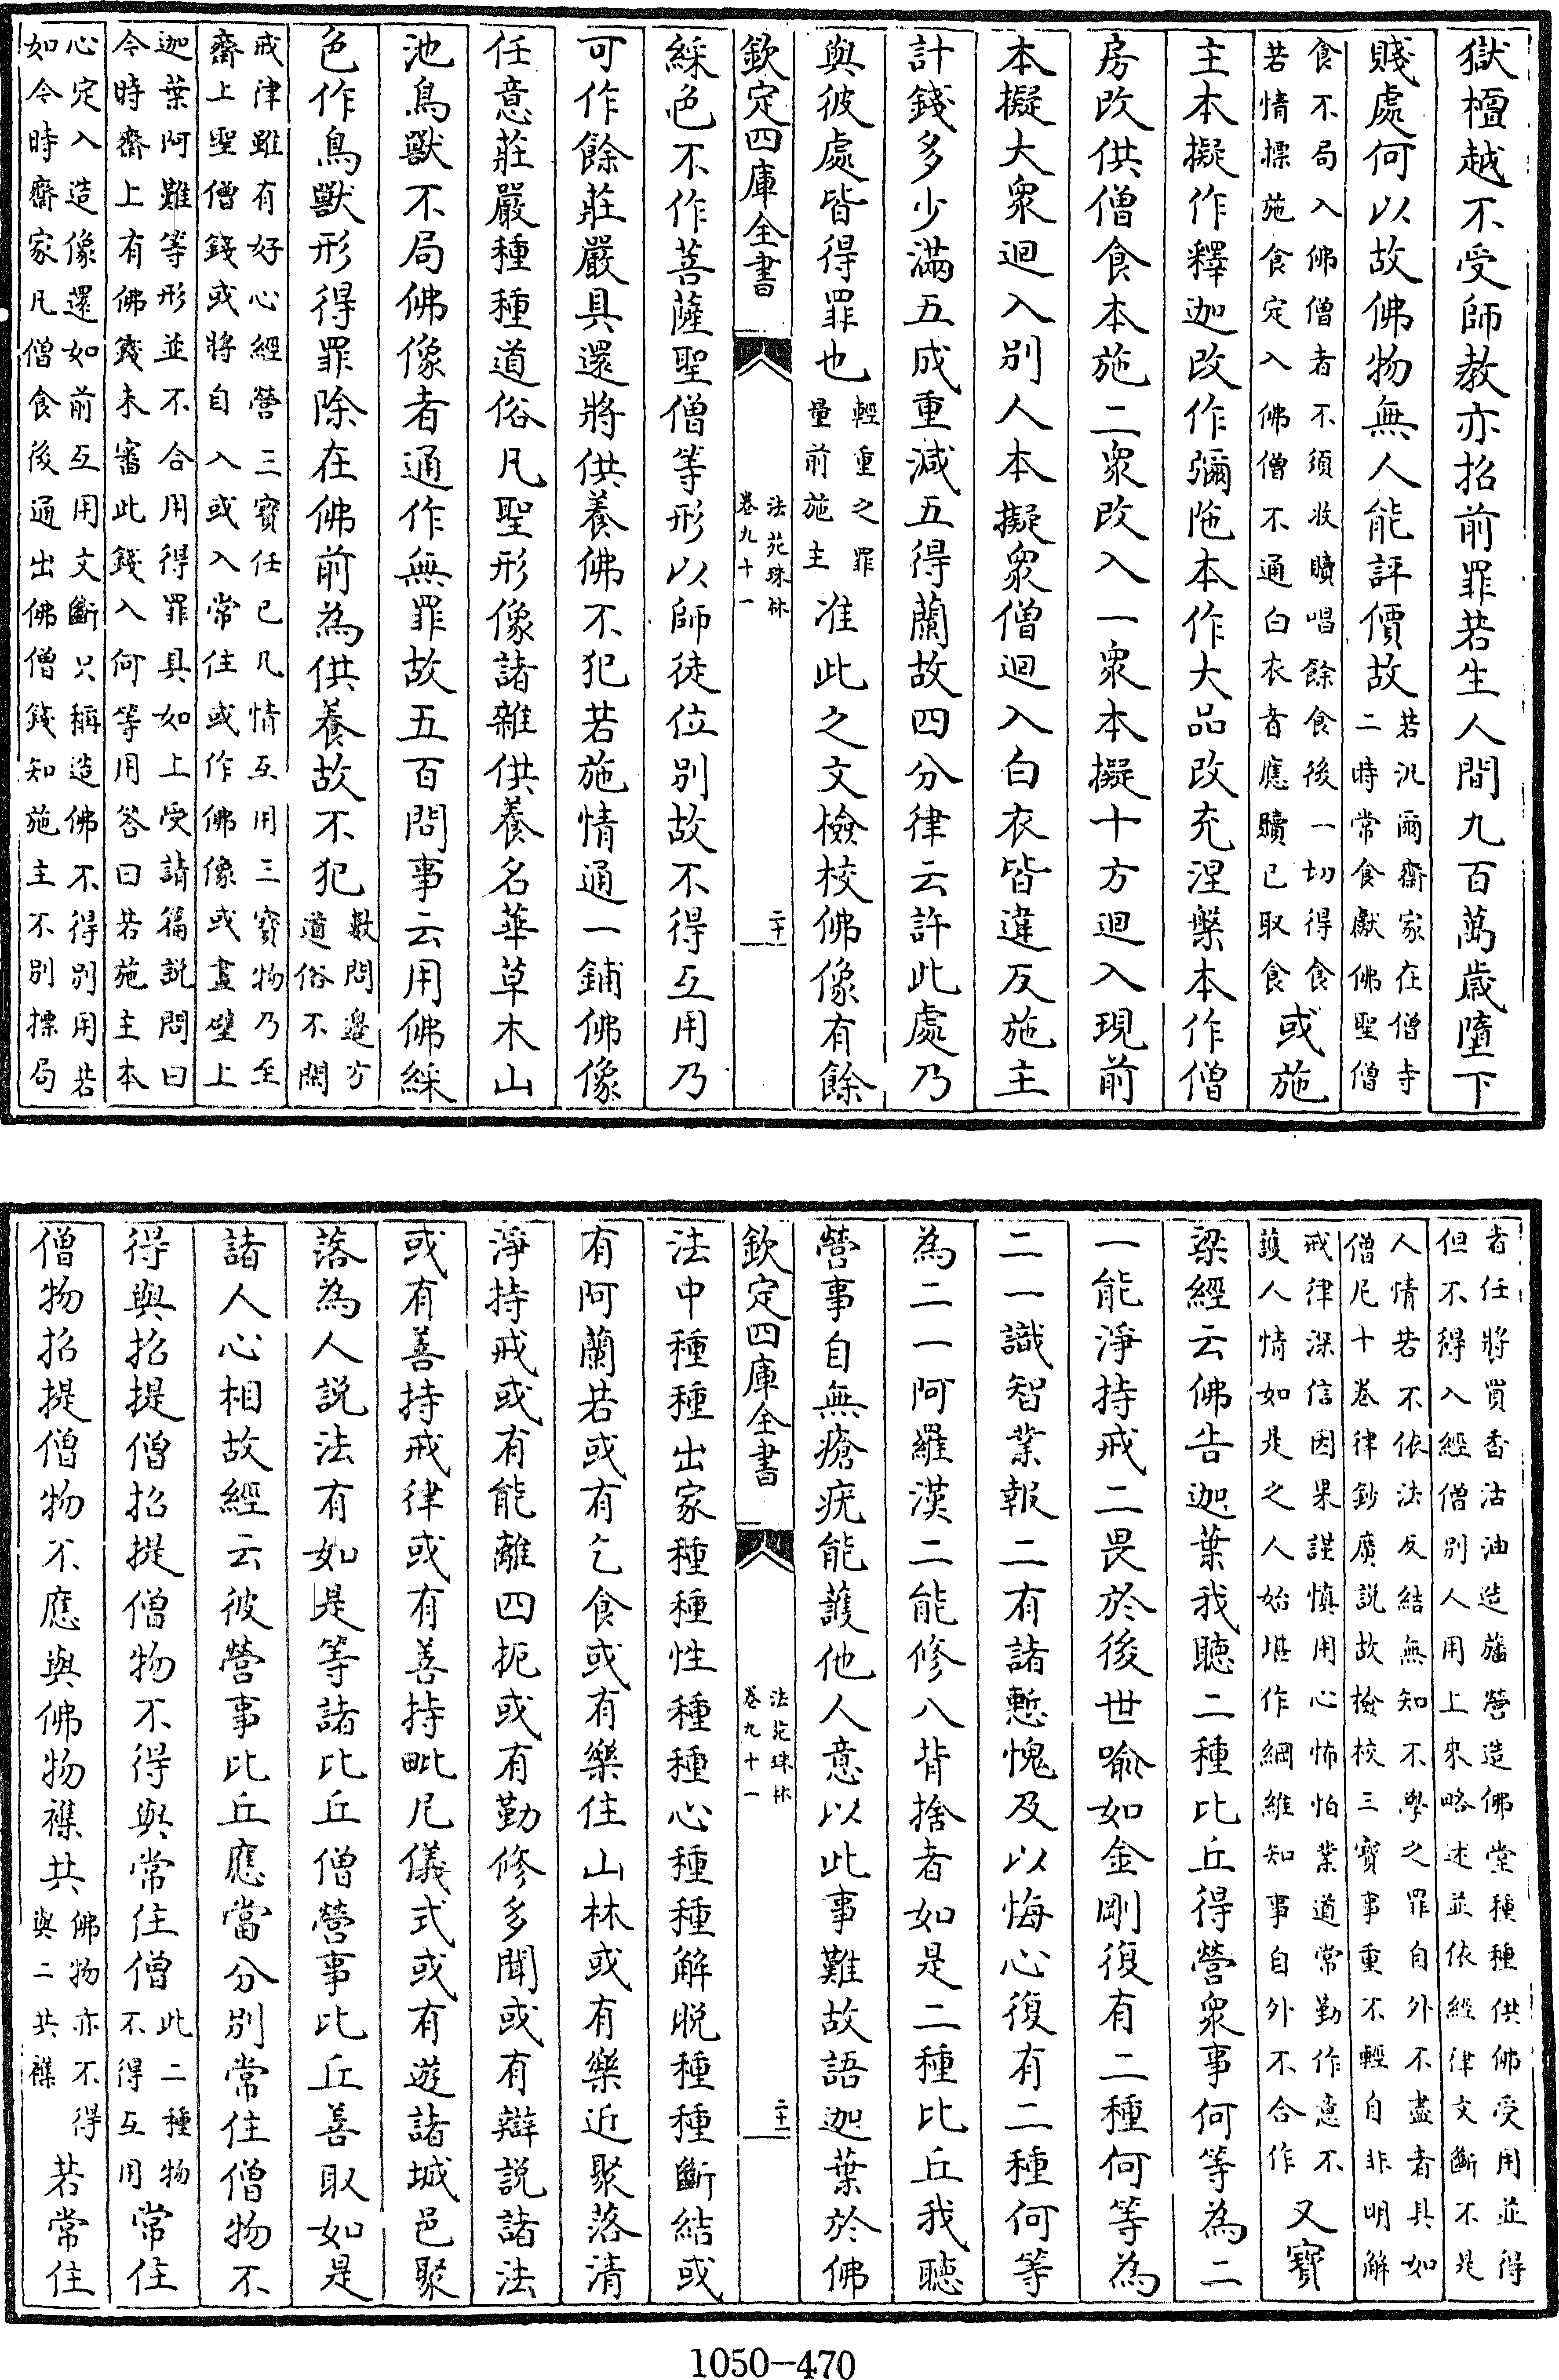 獄檀越不受師教亦招前罪若生人間九百萬歲墮下
賤處何以故佛物無人能評價故若汎爾齋家在僧寺二時常食獻佛聖僧
食不局入佛僧者不須收贖唱餘食後一切得食若情標施食定入佛僧不通白衣者應贖已取食或施
主本擬作釋迦改作彌陁本作大品改充涅槃本作僧
房改供僧食本施二衆改入一衆本擬十方迴入現前
本擬大衆迴入別人本擬衆僧迴入白衣皆違反施主
計錢多少滿五成重減五得蘭故四分律云許此處乃
與彼處皆得罪也輕重之罪量前施主准此之文檢校佛像有餘
欽定四庫全書
法苑珠林
卷九十一
二十
綵色不作菩薩聖僧等形以師徒位別故不得互用乃
可作餘莊嚴具還將供養佛不犯若施情通一鋪佛像
任意莊嚴種種道俗凡聖形像諸雜供養名華草木山
池鳥獸不局佛像者通作無罪故五百問事云用佛綵
色作鳥獸形得罪除在佛前為供養故不犯數問邊方道俗不閑
戒津雖有好心經營三寶任已凡情互用三寶物乃至齋上聖僧錢或將自入或入常住或作佛像或畫壁上
迦葉阿難等形並不合用得罪具如上受請篇說問曰今時齋上有佛錢未審此錢入何等用答曰若施主本
心定入造像還如前互用文斷只稱造佛不得別用若如今時齋家凡僧食後通出佛僧錢知施主不別標局
者任將買香沽油造旛營造佛堂種種供佛受用並得但不得入經僧別人用上來略述並依經律文斷不是
人情若不依法反結無知不學之罪自外不盡者具如僧尼十卷律鈔廣説故檢校三寶事重不輕自非明解
戒律深信因果謹慎用心怖怕業道常勤作意不護人情如是之人始堪作綱維知事自外不合作又寳
梁經云佛告迦葉我聽二種比丘得營衆事何等為二
一能淨持戒二畏於後世喻如金剛復有二種何等為
二一識智業報二有諸慙愧及以悔心復有二種何等
為二一阿羅漢二能修八背捨者如是二種比丘我聽
營事自無瘡疣能護他人意以此事難故語迦葉於佛
欽定四庫全書
法苑珠林
卷九十一
二十一
法中種種出家種種性種種心種種解脱種種斷結或
有阿蘭若或有乞食或有樂住山林或有樂近聚落清
淨持戒或有能離四扼或有勤修多聞或有辯説諸法
或有善持戒律或有善持毗尼儀式或有遊諸城邑聚
落為人説法有如是等諸比丘僧營事比丘善取如是
諸人心相故經云彼營事比丘應當分別常住僧物不
得與招提僧招提僧物不得與常住僧此二種物不得互用常住
僧物招提僧物不應與佛物襍共佛物亦不得與二共襍若常住
1050-470